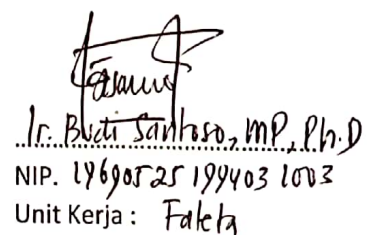 Ir. Budi Santoso, MP, Ph.D
NIP. 19690525 199403 1003
Unit Kerja : Faketa